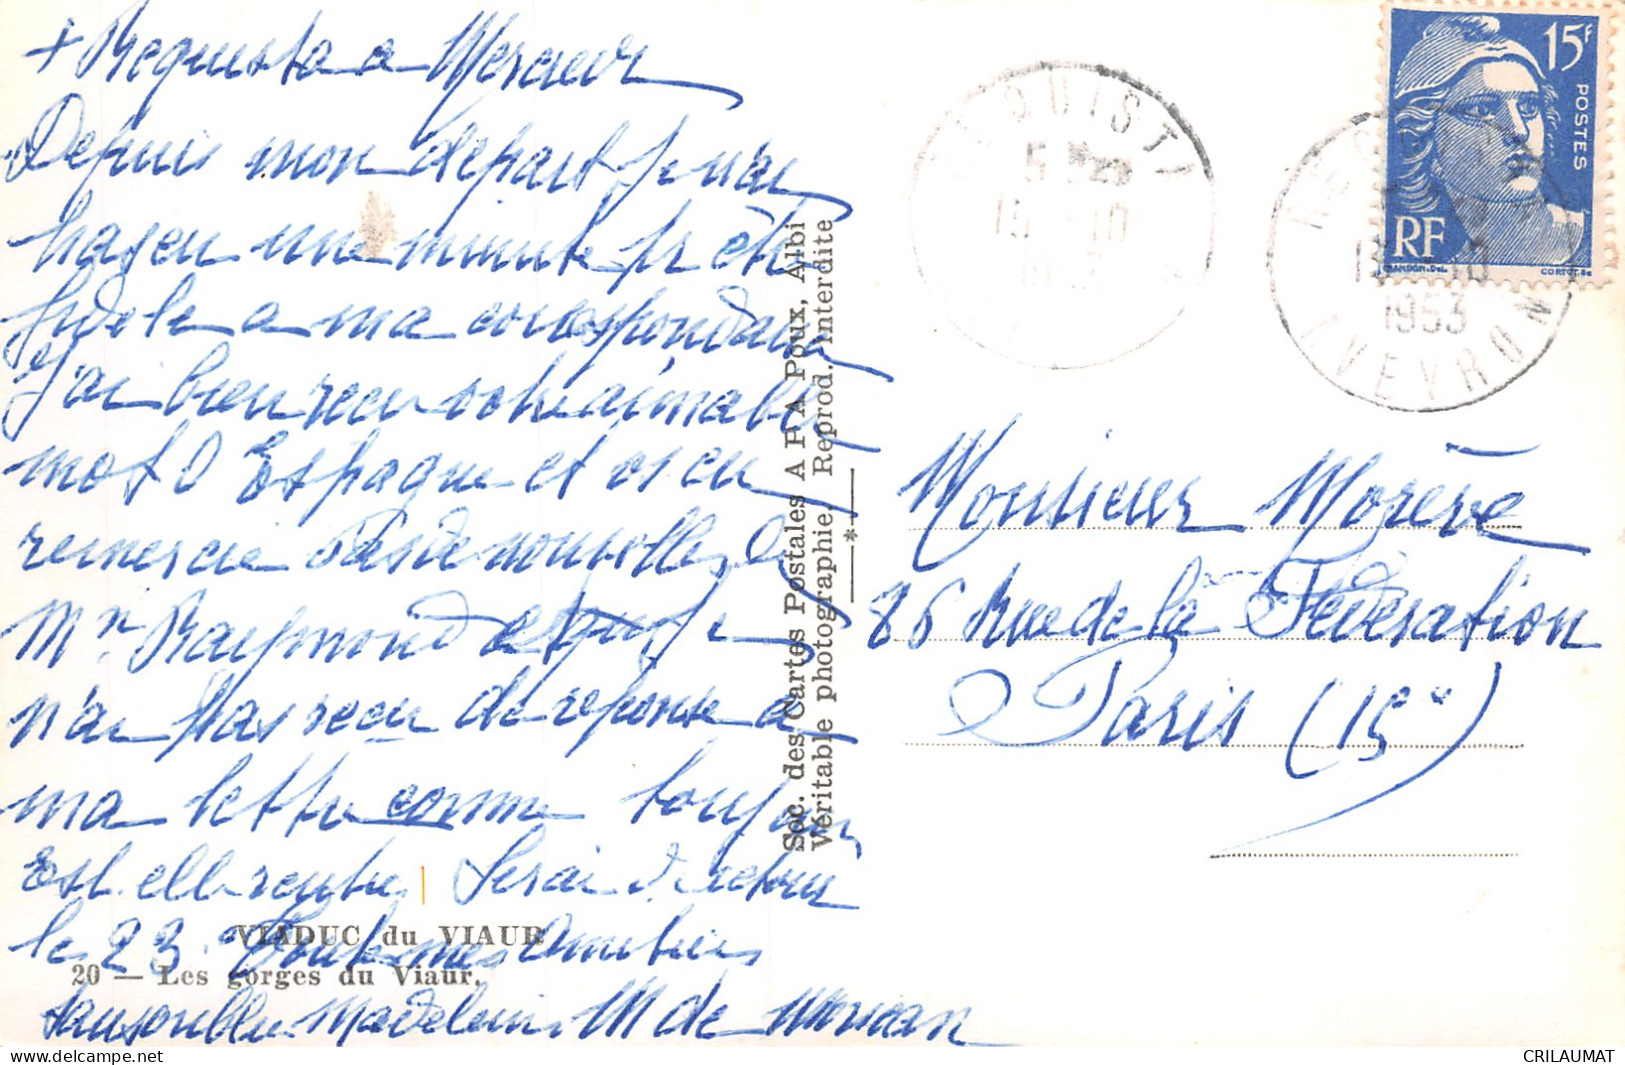 + Requista a Mercredi
Depuis mon depart je n'ai
pas eu une minute pr être
fidele a ma correspondance
J'ai bien recu votre aimable
mot d Espagne et vs en
remercie Pas de nouvelles de
Mr Raymond je
n'ai pas recu de reponse a
ma lettre comme toujours
Est elle rentre Serai de retour
le 23 Toutes mes amities
sans oublier Madeleine M de
VIADUC du VIAUR
20 — Les gorges du Viaur.
Soc. des Cartes Postales A P A Poux, Albi
Véritable photographie. Reprod. interdite
REQUISTA
15 10
REQUISTA
13 10
1953
AVEYRON
15F
POSTES
RF
GANDON.Del.
CORTOT.Sc
Monsieur Morère
86 Rue de la Fédération
Paris (15e)
delcampe.net
CRILAUMAT